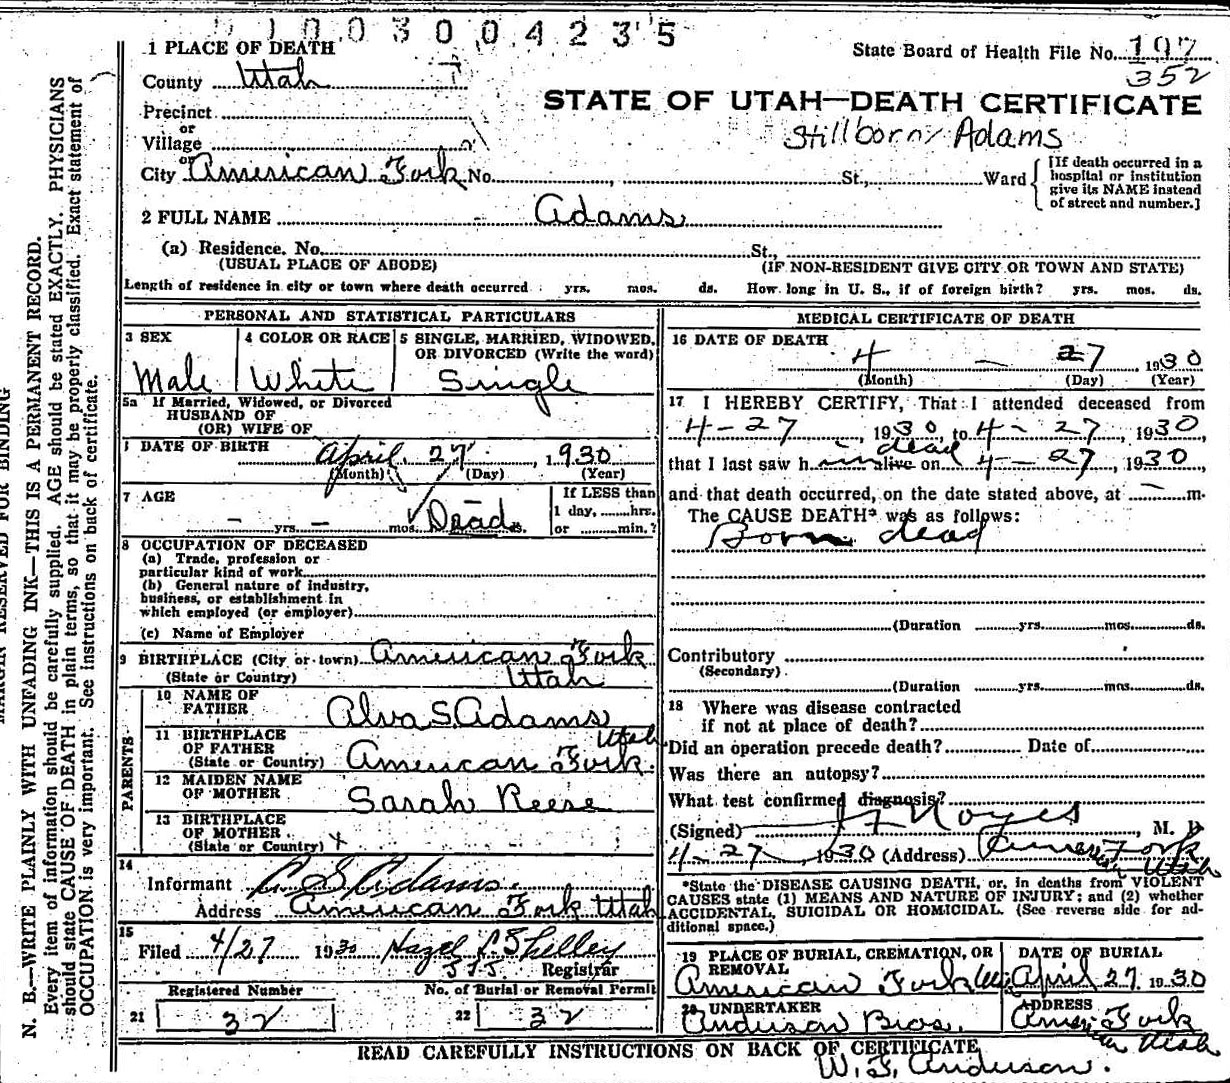 1 0 0 3 0 0 4 2 3 5
1 PLACE OF DEATH
State Board of Health File No. 197
352
County Utah
STATE OF UTAH—DEATH CERTIFICATE
Precinct
or
Village
Stillborn Adams
or
City American Fork No. St., Ward
[If death occurred in a hospital or institution give its NAME instead of street and number.]
2 FULL NAME Adams
(a) Residence. No. St.,
(USUAL PLACE OF ABODE) (IF NON-RESIDENT GIVE CITY OR TOWN AND STATE)
Length of residence in city or town where death occurred yrs. mos. ds. How long in U. S., if of foreign birth? yrs. mos. ds.
PERSONAL AND STATISTICAL PARTICULARS
3 SEX
Male
4 COLOR OR RACE
White
5 SINGLE, MARRIED, WIDOWED, OR DIVORCED (Write the word)
Single
5a If Married, Widowed, or Divorced
HUSBAND OF
(OR) WIFE OF
DATE OF BIRTH April 27 1930
(Month) (Day) (Year)
7 AGE
— yrs. — mos. Dead ds.
If LESS than
1 day, hrs.
or min.?
8 OCCUPATION OF DECEASED
(a) Trade, profession or
particular kind of work
(b) General nature of industry,
business, or establishment in
which employed (or employer)
(c) Name of Employer
9 BIRTHPLACE (City or town) American Fork
(State or Country) Utah
PARENTS
10 NAME OF FATHER
Alva S. Adams
11 BIRTHPLACE OF FATHER
(State or Country) American Fork. Utah
12 MAIDEN NAME OF MOTHER
Sarah Reese
13 BIRTHPLACE OF MOTHER
(State or Country) x
14
Informant A S Adams.
Address American Fork Utah
15
Filed 4/27 1930 Hazel L Shelley
Registrar
Registered Number
21 32
No. of Burial or Removal Permit
22 32
MEDICAL CERTIFICATE OF DEATH
16 DATE OF DEATH
4 — 27, 1930
(Month) (Day) (Year)
17 I HEREBY CERTIFY, That I attended deceased from
4-27, 1930, to 4-27, 1930,
that I last saw him alive on dead 4-27, 1930
and that death occurred, on the date stated above, at — m.
The CAUSE DEATH* was as follows:
Born dead
(Duration yrs. mos. ds.
Contributory
(Secondary)
(Duration yrs. mos. ds.
18 Where was disease contracted
if not at place of death?
Did an operation precede death? Date of
Was there an autopsy?
What test confirmed diagnosis?
(Signed) Noyes, M. D
4-27, 1930 (Address) American Fork Utah
*State the DISEASE CAUSING DEATH, or, in deaths from VIOLENT
CAUSES state (1) MEANS AND NATURE OF INJURY; and (2) whether
ACCIDENTAL, SUICIDAL OR HOMICIDAL. (See reverse side for ad-
ditional space.)
19 PLACE OF BURIAL, CREMATION, OR REMOVAL
American Fork
DATE OF BURIAL
April 27 1930
20 UNDERTAKER
Anderson Bros.
ADDRESS
American Fork Utah
READ CAREFULLY INSTRUCTIONS ON BACK OF CERTIFICATE
W. F. Anderson.
MARGIN RESERVED FOR BINDING
N. B.—WRITE PLAINLY WITH UNFADING INK—THIS IS A PERMANENT RECORD.
Every item of information should be carefully supplied. AGE should be stated EXACTLY. PHYSICIANS
should state CAUSE OF DEATH in plain terms, so that it may be properly classified. Exact statement of
OCCUPATION is very important. See instructions on back of certificate.